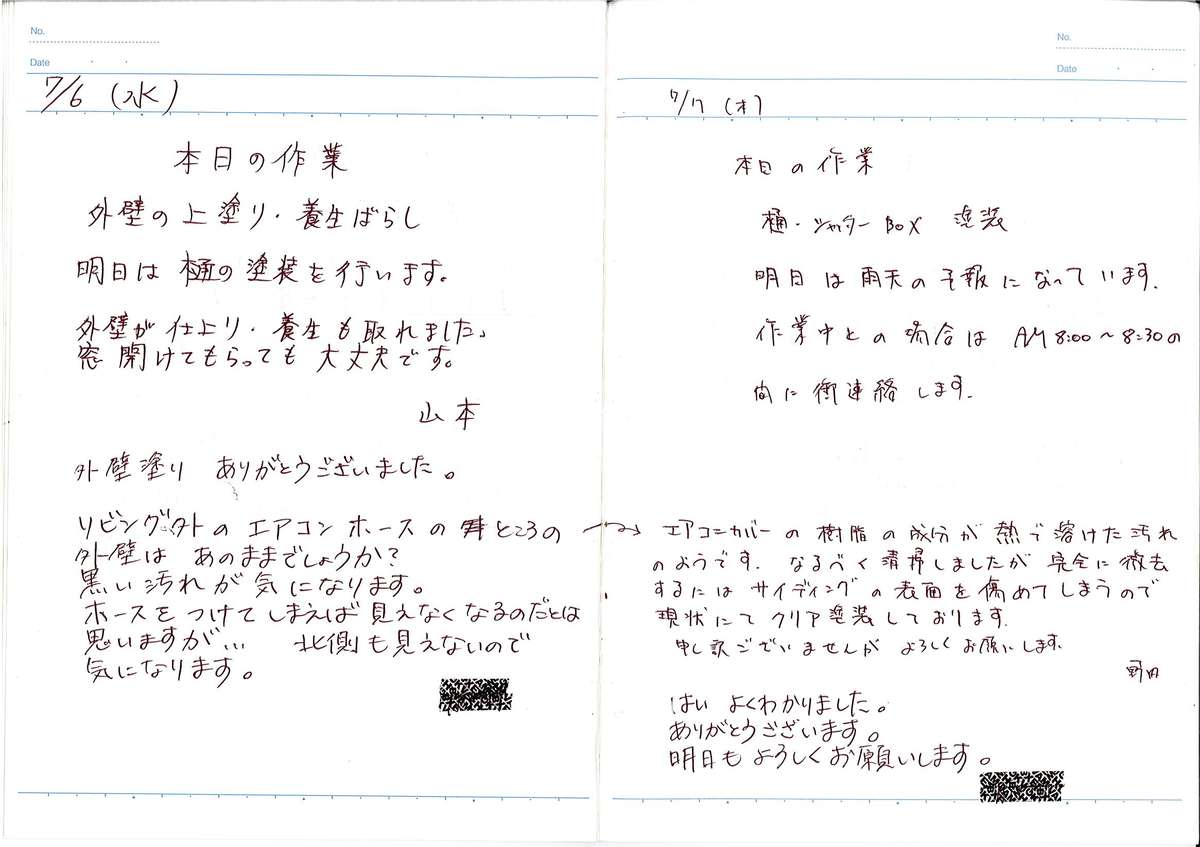 No.
Date
7/6 (水)
本日の作業
外壁の上塗り・養生ばらし
明日は樋の塗装を行います。
外壁が仕上り・養生も取れました、
窓開けてもらっても大丈夫です。
山本
外壁塗り ありがとうございました。
リビング外のエアコンホースの ところの
外壁は あのままでしょうか?
黒い汚れが気になります。
ホースをつけてしまえば見えなくなるのだとは
思いますが… 北側も見えないので
気になります。
No.
Date
7/7 (木)
本日の作業
樋・シャッターBOX 塗装
明日は雨天の予報になっています.
作業中との場合は AM 8:00~8:30の
間に御連絡します.
→ エアコンカバーの樹脂の成分が熱で溶けた汚れ
のようです. なるべく清掃しましたが完全に撤去
するにはサイディングの表面を傷めてしまうので
現状にてクリア塗装しております.
申し訳ございませんが よろしくお願いします.
野田
はい よくわかりました。
ありがとうございます。
明日もよろしくお願いします。